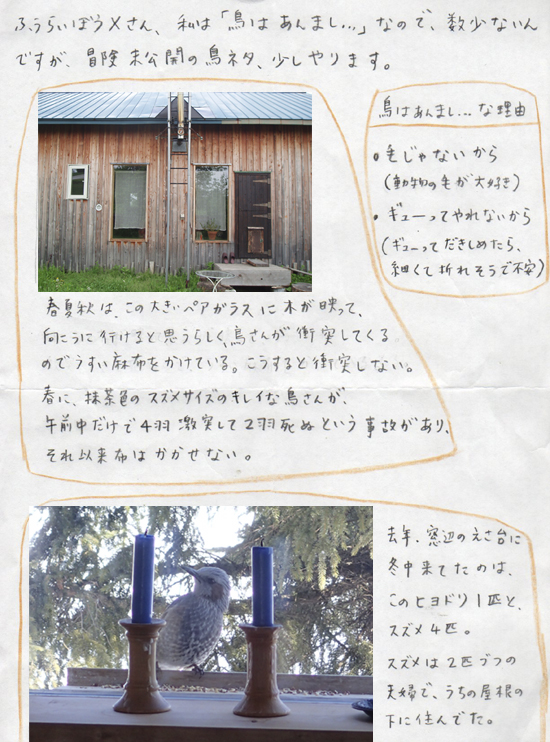 ふうらいぼう〆さん、私は「鳥は あんまし…」なので、数少ないん
ですが、冒険 未公開の鳥ネタ、少しやります。
鳥はあんまし…な理由
・毛じゃないから
(動物の毛が大好き)
・ギューってやれないから
(ギューってだきしめたら、
細くて折れそうで不安)
春夏秋は、この大きいペアガラスに木が映って、
向こうに行けると思うらしく、鳥さんが衝突してくる
のでうすい麻布をかけている。こうすると衝突しない。
春に、抹茶色のスズメサイズのキレイな鳥さんが、
午前中だけで4羽激突して2羽死ぬという事故があり、
それ以来布はかかせない。
去年、窓辺のえさ台に
冬中来てたのは、
このヒヨドリ1匹と、
スズメ4匹。
スズメは2匹づつの
夫婦で、うちの屋根の
下に住んでた。